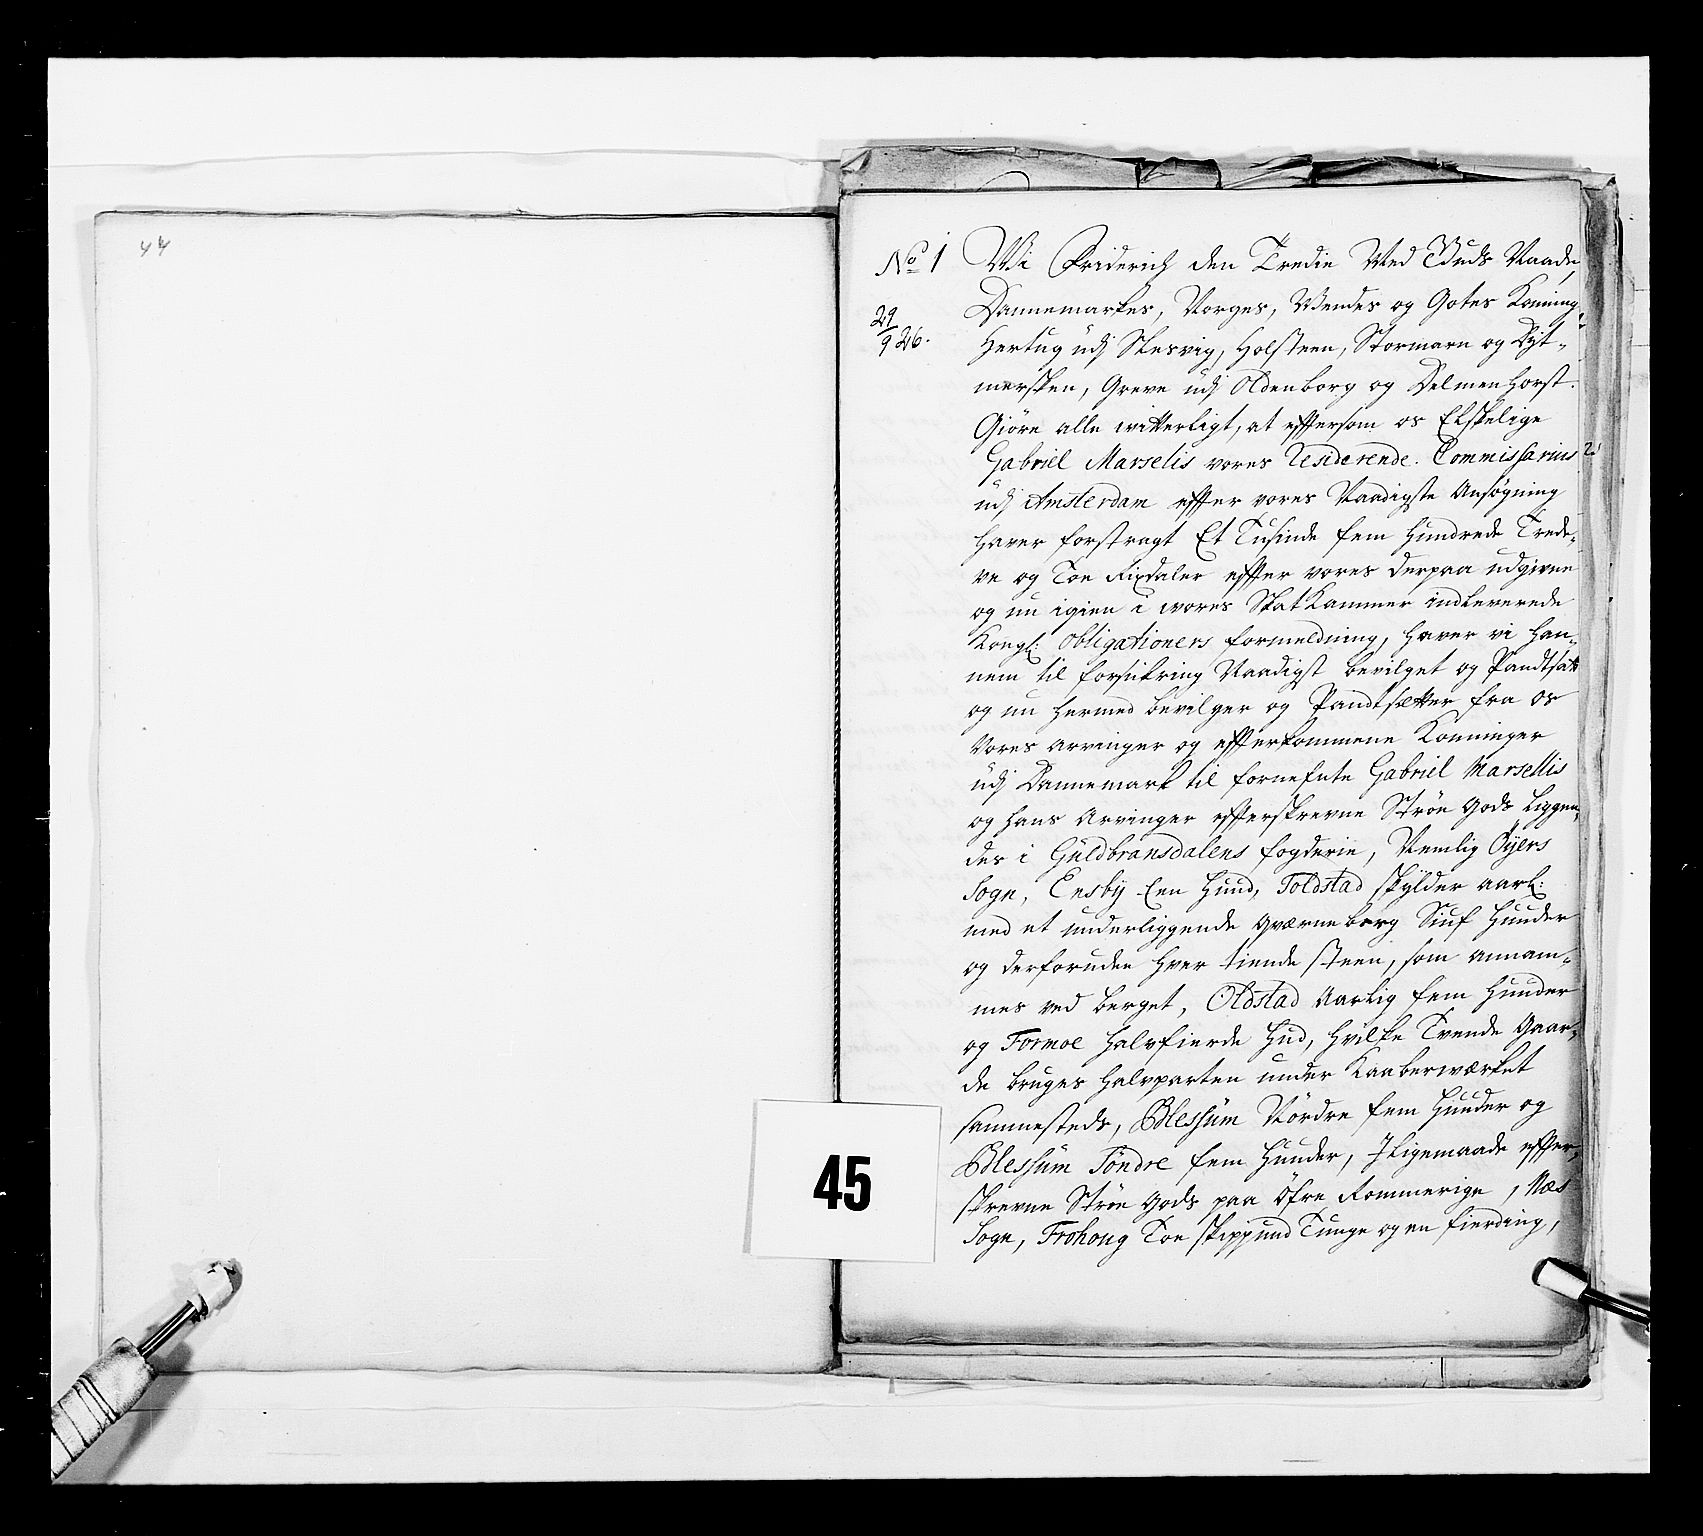 44
No 1 Wi Friderich den Tredie Med Guds Naade
29/9 26.
Dannemarkes, Norges, Wendes og Gotes Konning,
Hertug udj Slesvig, Holsteen, Stormarn og Dyt-
mersken, Greve udj Oldenborg og Delmenhorst.
Giöre alle witterligt, at effersom os Elskelige
Gabriel Marselis vores Residerende Commissarius
udj Amsterdam effter vores Naadigste Ansögning
haver forstragt Et Tusinde fem Hundrede Trede-
ve og Toe Rixdaler effter vores derpaa udgivne
og nu igien i wores SkatKammer indleverede
Kongl: Obligationers formeldning, haver vi han-
nem til forsikring Naadigst bevilget og Pandtsat
og nu hermed bevilger og Pandtsetter fra os
Vores arvinger og effterkommene Konninger
udj Dannemark til fornefnte Gabriel Marsellis
og hans Arvinger effterskrevne Ströe Gods liggen-
des i Guldbransdalens fogderie, Nemlig Öyers
Sogn, Ensby Een Hund, Toldstad skylder aarl:
med et underliggende Qværneberg Siuf Huuder
og derforuden hver tiende steen, som annam-
mes ved berget, Oldstad Aarlig fem Huuder
og Formoe halvfierde Hud, hvilke Tvende Gaar-
de bruges halvparten under Kaaberwærket
sammesteds, Blessum Nördre fem Huuder og
Blessum Söndre fem Huuder, J ligemaade effter-
skrevne Ströe Gods paa Öfre Rommerige, Næs
Sogn, Frohoug Toe skippund Tunge og en fierding,
45